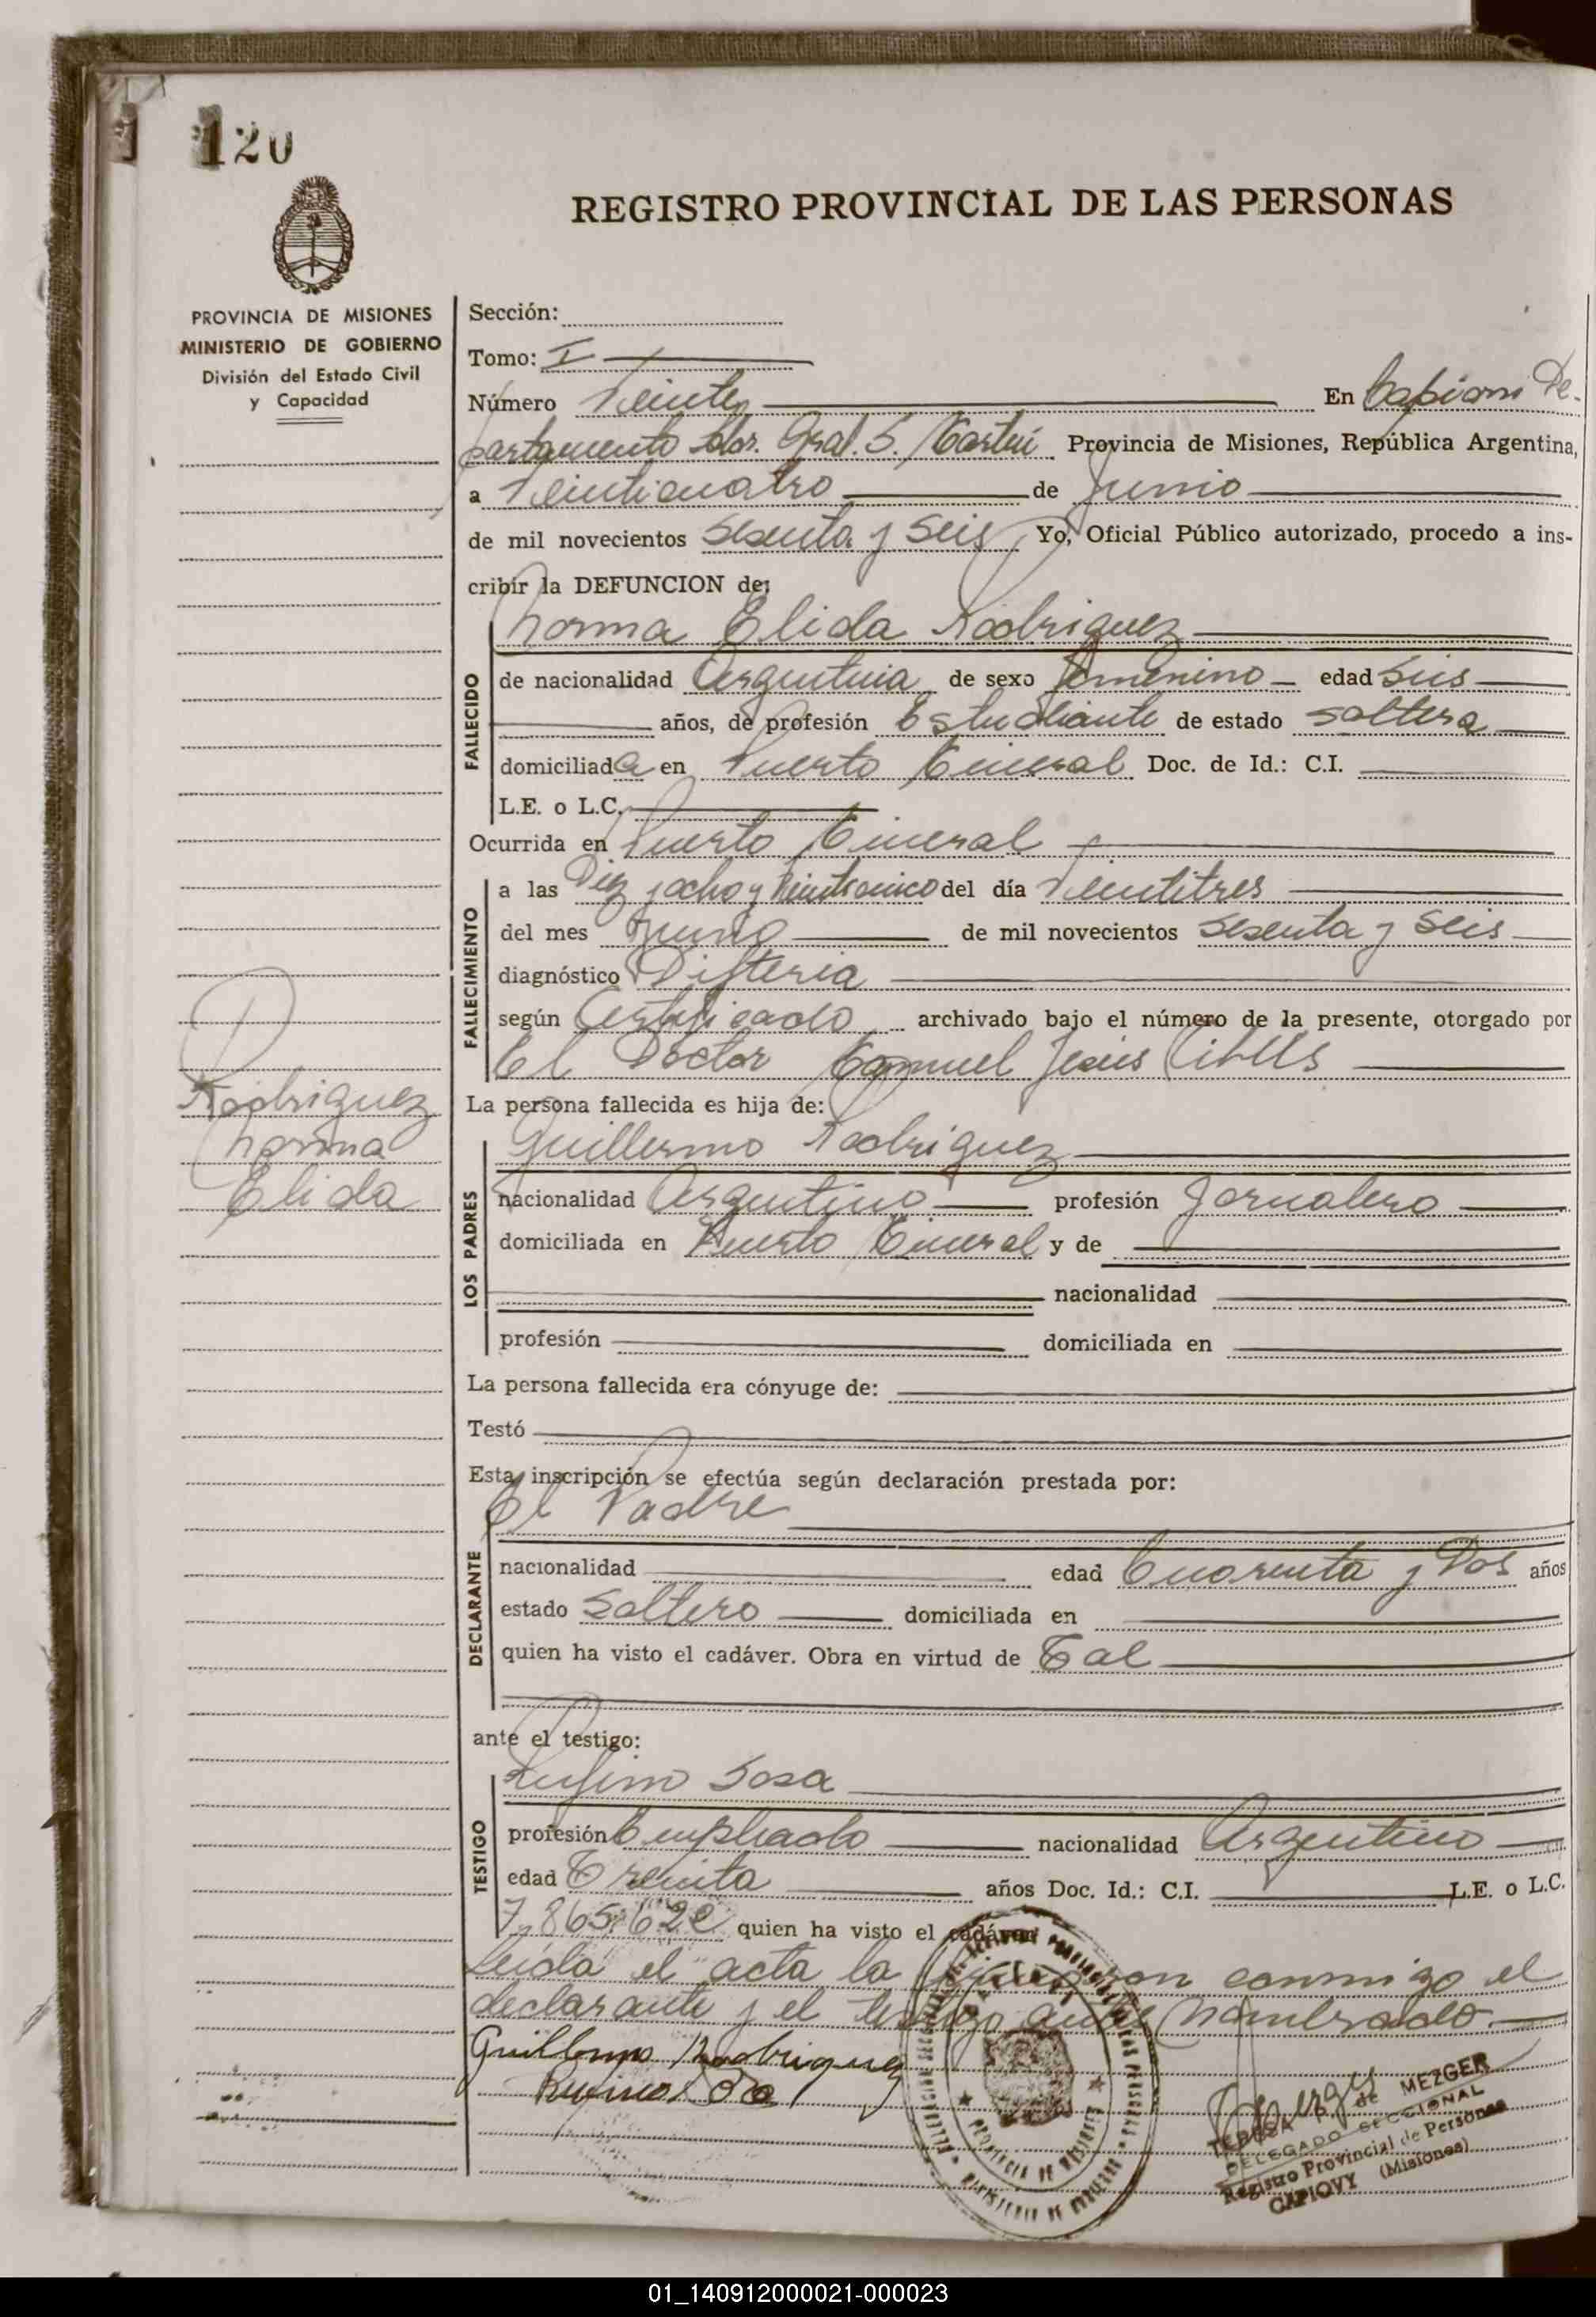 120
REGISTRO PROVINCIAL DE LAS PERSONAS
PROVINCIA DE MISIONES
MINISTERIO DE GOBIERNO
División del Estado Civil
y Capacidad
Sección:
Tomo: I
Número Veinte En Capiovi De-
partamento Ldor. Gral. S. Martín Provincia de Misiones, República Argentina,
a Veinticuatro de Junio
de mil novecientos Sesenta y Seis Yo, Oficial Público autorizado, procedo a ins-
cribir la DEFUNCION de:
Norma Elida Rodriguez
FALLECIDO
de nacionalidad Argentina de sexo femenino edad Seis
años, de profesión Estudiante de estado soltera
domiciliada en Puerto Mineral Doc. de Id.: C.I.
L.E. o L.C.
Ocurrida en Puerto Mineral
FALLECIMIENTO
a las Diez y ocho y Veinticinco del día Veintitres
del mes Junio de mil novecientos Sesenta y Seis
diagnóstico Difteria
según Certificado archivado bajo el número de la presente, otorgado por
El Doctor Manuel Jesús
La persona fallecida es hija de:
Rodriguez
Norma
Elida
LOS PADRES
Guillermo Rodriguez
nacionalidad Argentino profesión Jornalero
domiciliada en Puerto Mineral y de
nacionalidad
profesión domiciliada en
La persona fallecida era cónyuge de:
Testó
Esta inscripción se efectúa según declaración prestada por:
El Padre
DECLARANTE
nacionalidad edad Cuarenta y Dos años
estado Soltero domiciliada en
quien ha visto el cadáver. Obra en virtud de Tal
ante el testigo:
TESTIGO
Rufino Sosa
profesión Empleado nacionalidad Argentino
edad Treinta años Doc. Id.: C.I. L.E. o L.C.
7.865.622 quien ha visto el cadáver
Leída el acta la firmaron conmigo el
declarante y el testigo antes nombrado.
Guillermo Rodriguez
Rufino Sosa
TERESA P. de MEZGER
DELEGADO SECCIONAL
Registro Provincial de Personas
CAPIOVY (Misiones)
PROVINCIA DE MISIONES
MINISTERIO DE GOBIERNO
01_140912000021-000023